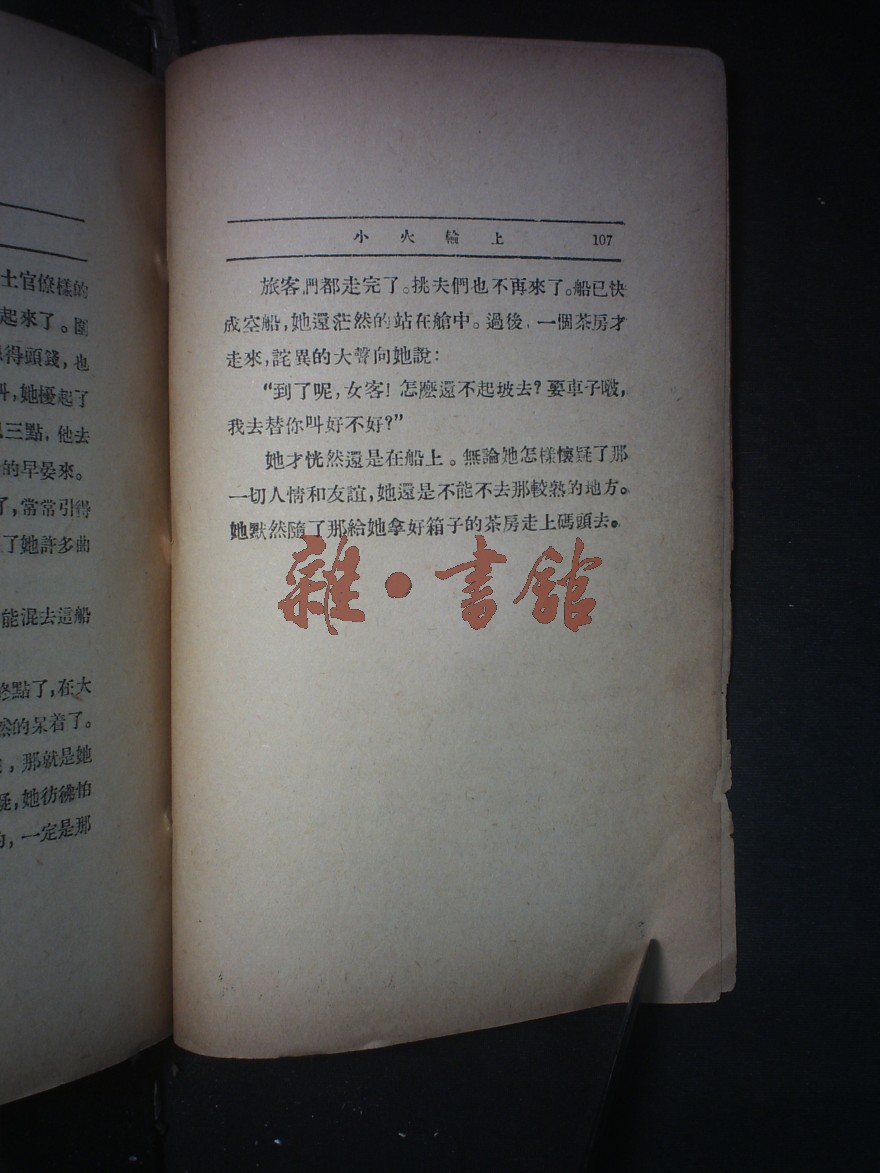 士官僚樣的
起來了。
得頭錢，也
她擾起了
三點，他去
的早晏來。
了，常常引得
了她許多曲
能混去這船
點了，在大
然的呆着了。
，那就是她
疑，她彷彿怕
，一定是那
小火輪上 107
旅客們都走完了。挑夫們也不再來了。船已快
成空船，她還茫然的站在艙中。過後，一個茶房才
走來，詫異的大聲向她說：
“到了呢，女客！怎麽還不起坡去？要車子啵，
我去替你叫好不好？”
她才恍然還是在船上。無論她怎樣懷疑了那
一切人情和友誼，她還是不能不去那較熟的地方。
她默然隨了那給她拿好箱子的茶房走上碼頭去。
雜·書館